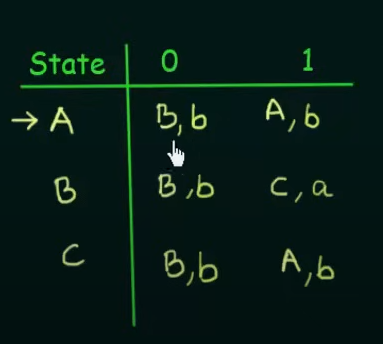 State 0 1
→ A B,b A,b
B B,b C,a
C B,b A,b